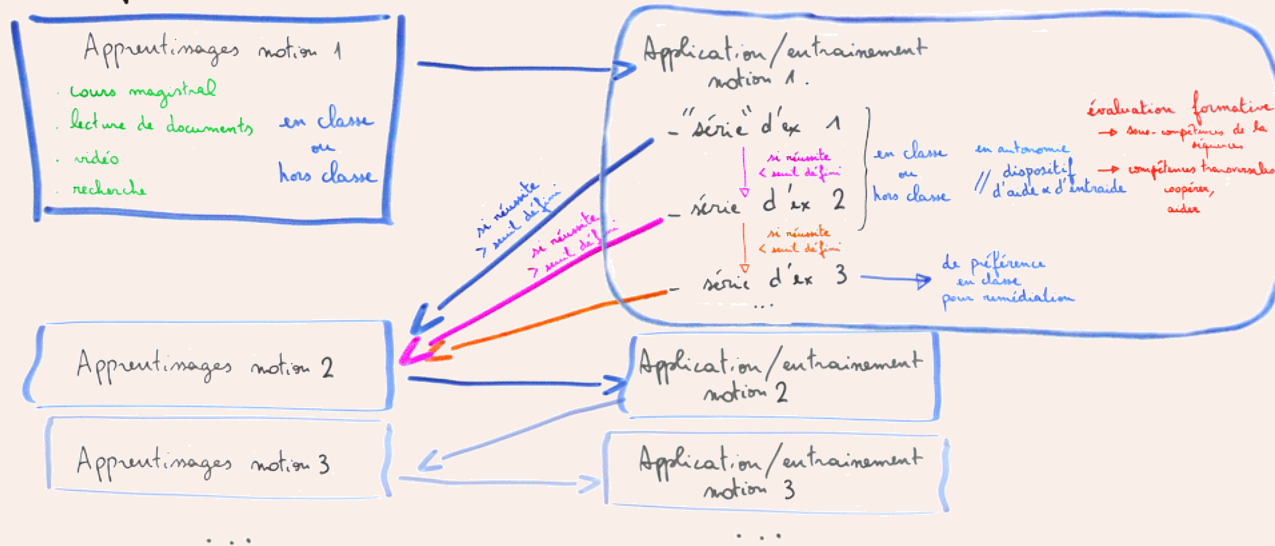 Apprentissages notion 1
. cours magistral
. lecture de documents
. vidéo
. recherche
en classe
ou
hors classe
Application/entrainement
notion 1.
- "série" d'ex 1
si réussite
< seuil défini
- série d'ex 2
si réussite
< seuil défini
- série d'ex 3
...
en classe
ou
hors classe
en autonomie
// dispositif
d'aide & d'entraide
évaluation formative
→ sous-compétences de la
séquence
→ compétences transversales
coopérer,
aider
de préférence
en classe
pour remédiation
si réussite
> seuil défini
si réussite
> seuil défini
Apprentissages notion 2
Application/entrainement
notion 2
Apprentissages notion 3
Application/entrainement
notion 3
...
...